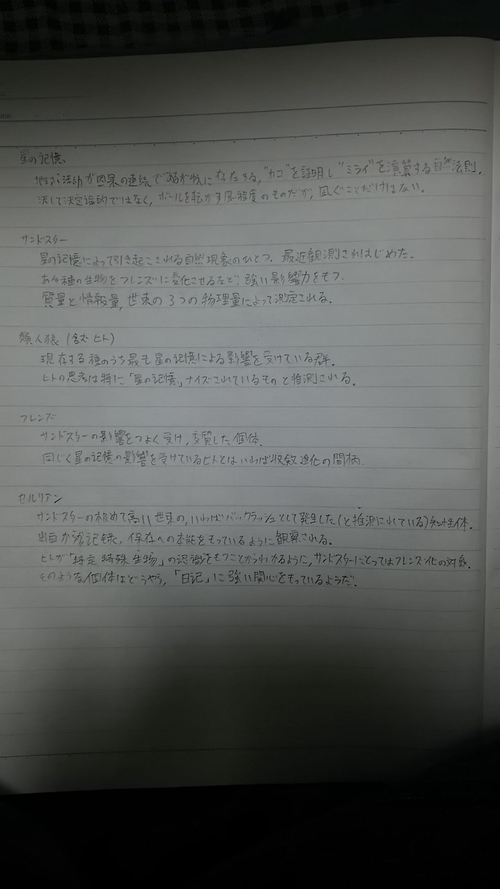 星の記憶
決して決定論的ではなく、ボールを転がす風程度のものだが、凪ぐことだけはない。
サンドスター
星の記憶によって引き起こされる自然現象のひとつ。最近観測されはじめた。
あらゆる種の生物をフレンズに変化させるなど強い影響力をもつ。
質量と情報量、世束の3つの物理量によって測定される。
類人猿(含む ヒト)
現存する種のうち最も星の記憶による影響を受けている群。
ヒトの思考は特に「星の記憶」ナイズされているものと推測される。
フレンズ
サンドスターの影響をつよく受け、変質した個体。
同じく星の記憶の影響を受けているヒトとはいわば収斂進化の間柄
セルリアン
サンドスターの極めて高い世束の、いわばバックラッシュとして発生した(と推測されている)知性体。
記録、保存への本能をもっているように観察される。
ヒトが「特定特殊生物」の認識をもつことからわかるように、サンドスターにとってはフレンズ化の対象。
そのような個体はどうやら、「日記」に強い関心をもっているようだ。